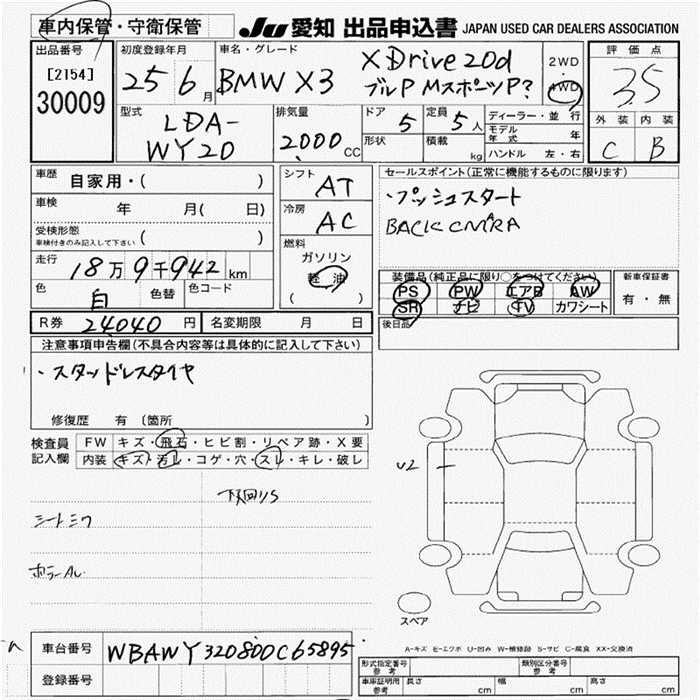 車内保管・守衛保管
JU 愛知 出品申込書 JAPAN USED CAR DEALERS ASSOCIATION
出品番号
[2154]
30009
初度登録年月
25年 6月
車名・グレード
BMW X3
XDrive20d
ブルP MスポーツP?
2WD
・
4WD
評価点
3.5
外装 内装
C B
型式
LDA-
WY20
排気量
2000 CC
ドア 5
形状
定員 5 人
積載 kg
ディーラー・並行
モデル年式 年
ハンドル 左・右
車歴 自家用・( )
車検 年 月( 日)
受検形態
車検付きのみ記入して下さい ( )
走行 18万9千942 km
色 白 色替 色コード
R券 24040 円 名変期限 月 日
シフト AT
冷房 AC
燃料
ガソリン
軽油
( )
セールスポイント(正常に機能するものに限ります)
・プッシュスタート
BACK CMRA
装備品(純正品に限り○をつけてください)
PS PW エアB AW
SR ナビ TV カワシート
新車保証書
有・無
後日品
注意事項申告欄(不具合内容等は具体的に記入して下さい)
・スタッドレスタイヤ
修復歴 有 〔箇所 〕
検査員記入欄
FW キズ・飛石・ヒビ割・リペア跡・X要
内装 キズ・汚レ・コゲ・穴・スレ・キレ・破レ
下回リS
シートシワ
U2
スペア
A-キズ E-エクボ U-凹み W-補修跡 S-サビ C-腐食 XX-交換済
車台番号 WBAWY320800C65895
登録番号
形式指定番号
参考
類別区分番号
参考
車庫証明用
参考
長さ cm 幅 cm 高さ cm